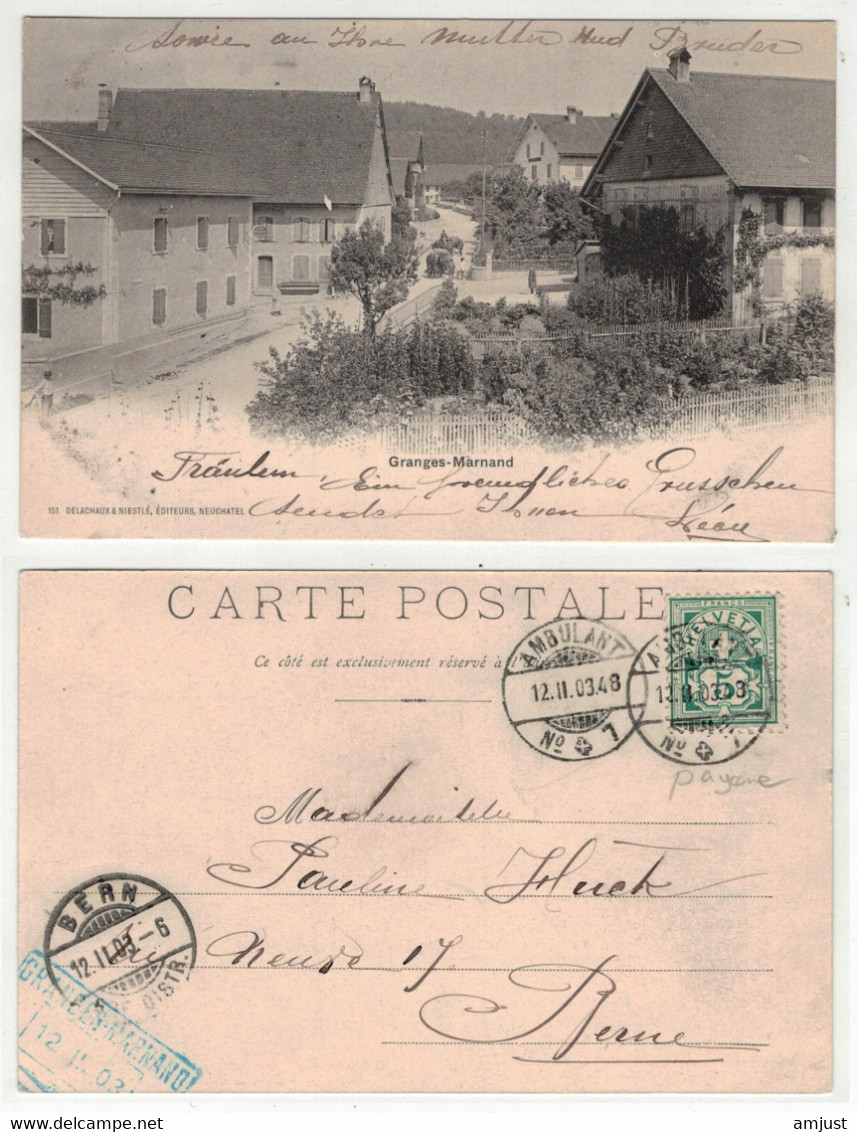 Sowie an Ihre Mutter und Bruder
Granges-Marnand
Fräulein, Ein freundliches Grüsschen
151 DELACHAUX & NIESTLÉ, ÉDITEURS, NEUCHATEL
sendet Ihnen Léon
CARTE POSTALE
Ce côté est exclusivement réservé à l'
FRANCO
HELVETIA
5
AMBULANT
12.II.03.48
No 7
AMBULANT
12.II.03.48
No 7
payerne
Mademoiselle
Pauline Huck
BERN
12.II.03-6
DISTR.
Rue Neuve 17
Berne
GRANGES-MARNAND
12 II. 03
amjust